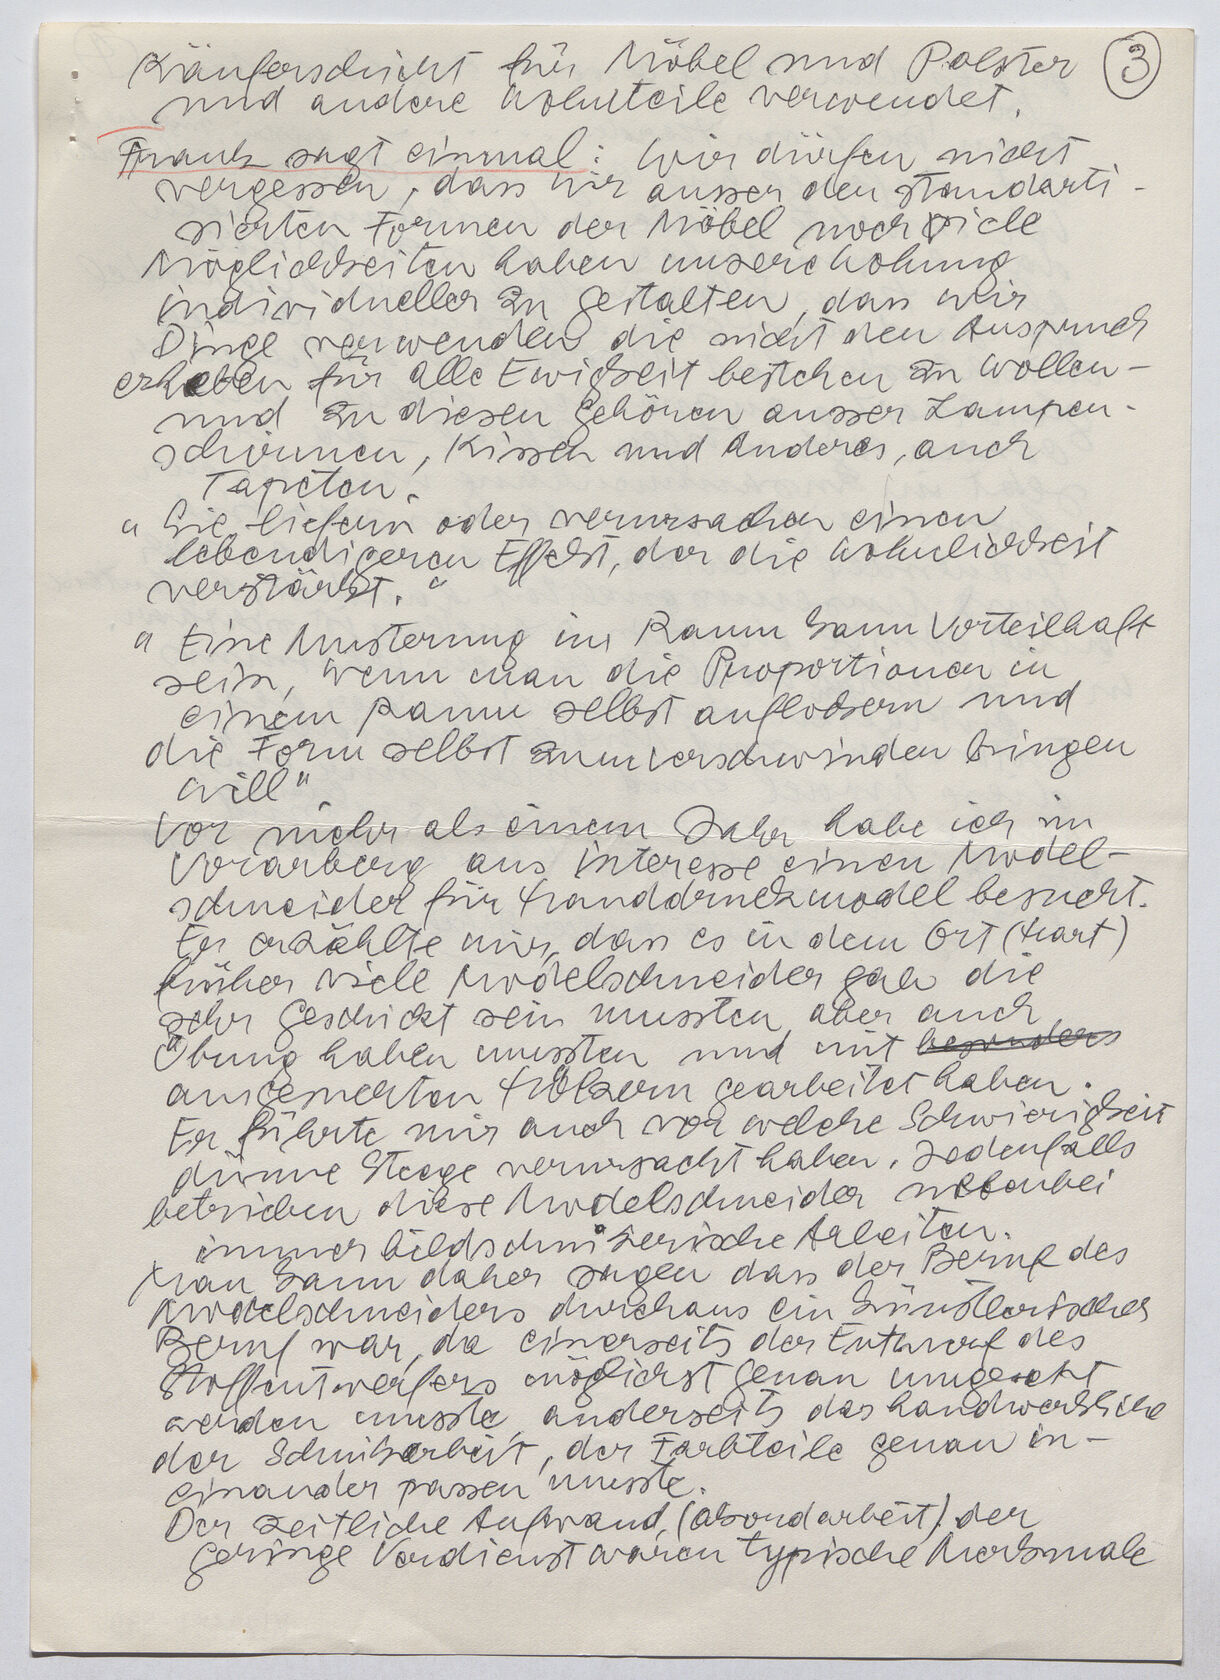 Käuferschicht für Möbel und Polster ③
und andere Wohnteile verwendet.
Frank sagt einmal: Wir dürfen nicht
vergessen, dass wir ausser den standarti-
sierten Formen der Möbel noch viele
Möglichkeiten haben unsere Wohnung
individueller zu gestalten, dass wir
Dinge verwenden die nicht den Anspruch
erheben für alle Ewigkeit bestehen zu wollen -
und zu diesen gehören ausser Lampen-
schirmen, Kissen und Anderes, auch
Tapeten.
"Sie liefern oder verursachen einen
lebendigeren Effekt, der die Wohnlichkeit
verstärkt."
"Eine Musterung im Raum kann Vorteilhaft
sein, wenn man die Proportionen in
einem Raum selbst auflockern und
die Form selbst zum verschwinden bringen
will"
Vor mehr als einem Jahr habe ich im
Vorarberg aus Interesse einen Model-
schneider für Handdruckmodel besucht.
Er erzählte mir, dass es in dem Ort (Hart)
früher viele Modelschneider gab die
sehr geschickt sein mussten, aber auch
Übung haben mussten und mit besonders
ausgesuchten Hölzern gearbeitet haben.
Er führte mir auch vor welche Schwierigkeit
dünne Steege verursacht haben. Jedenfalls
betrieben diese Modelschneider nebenbei
immer bildschnitzerische Arbeiten.
Man kann daher sagen dass der Beruf des
Modelschneiders durchaus ein künstlerischer
Beruf war, da einerseits der Entwurf des
Stoffentwerfers möglichst genau umgesetzt
werden musste, anderseits das handwerkliche
der Schnitzarbeit, der Farbteile genau in-
einander passen musste.
Der zeitliche Aufwand, (akordarbeit) der
geringe Verdienst waren typische Merkmale